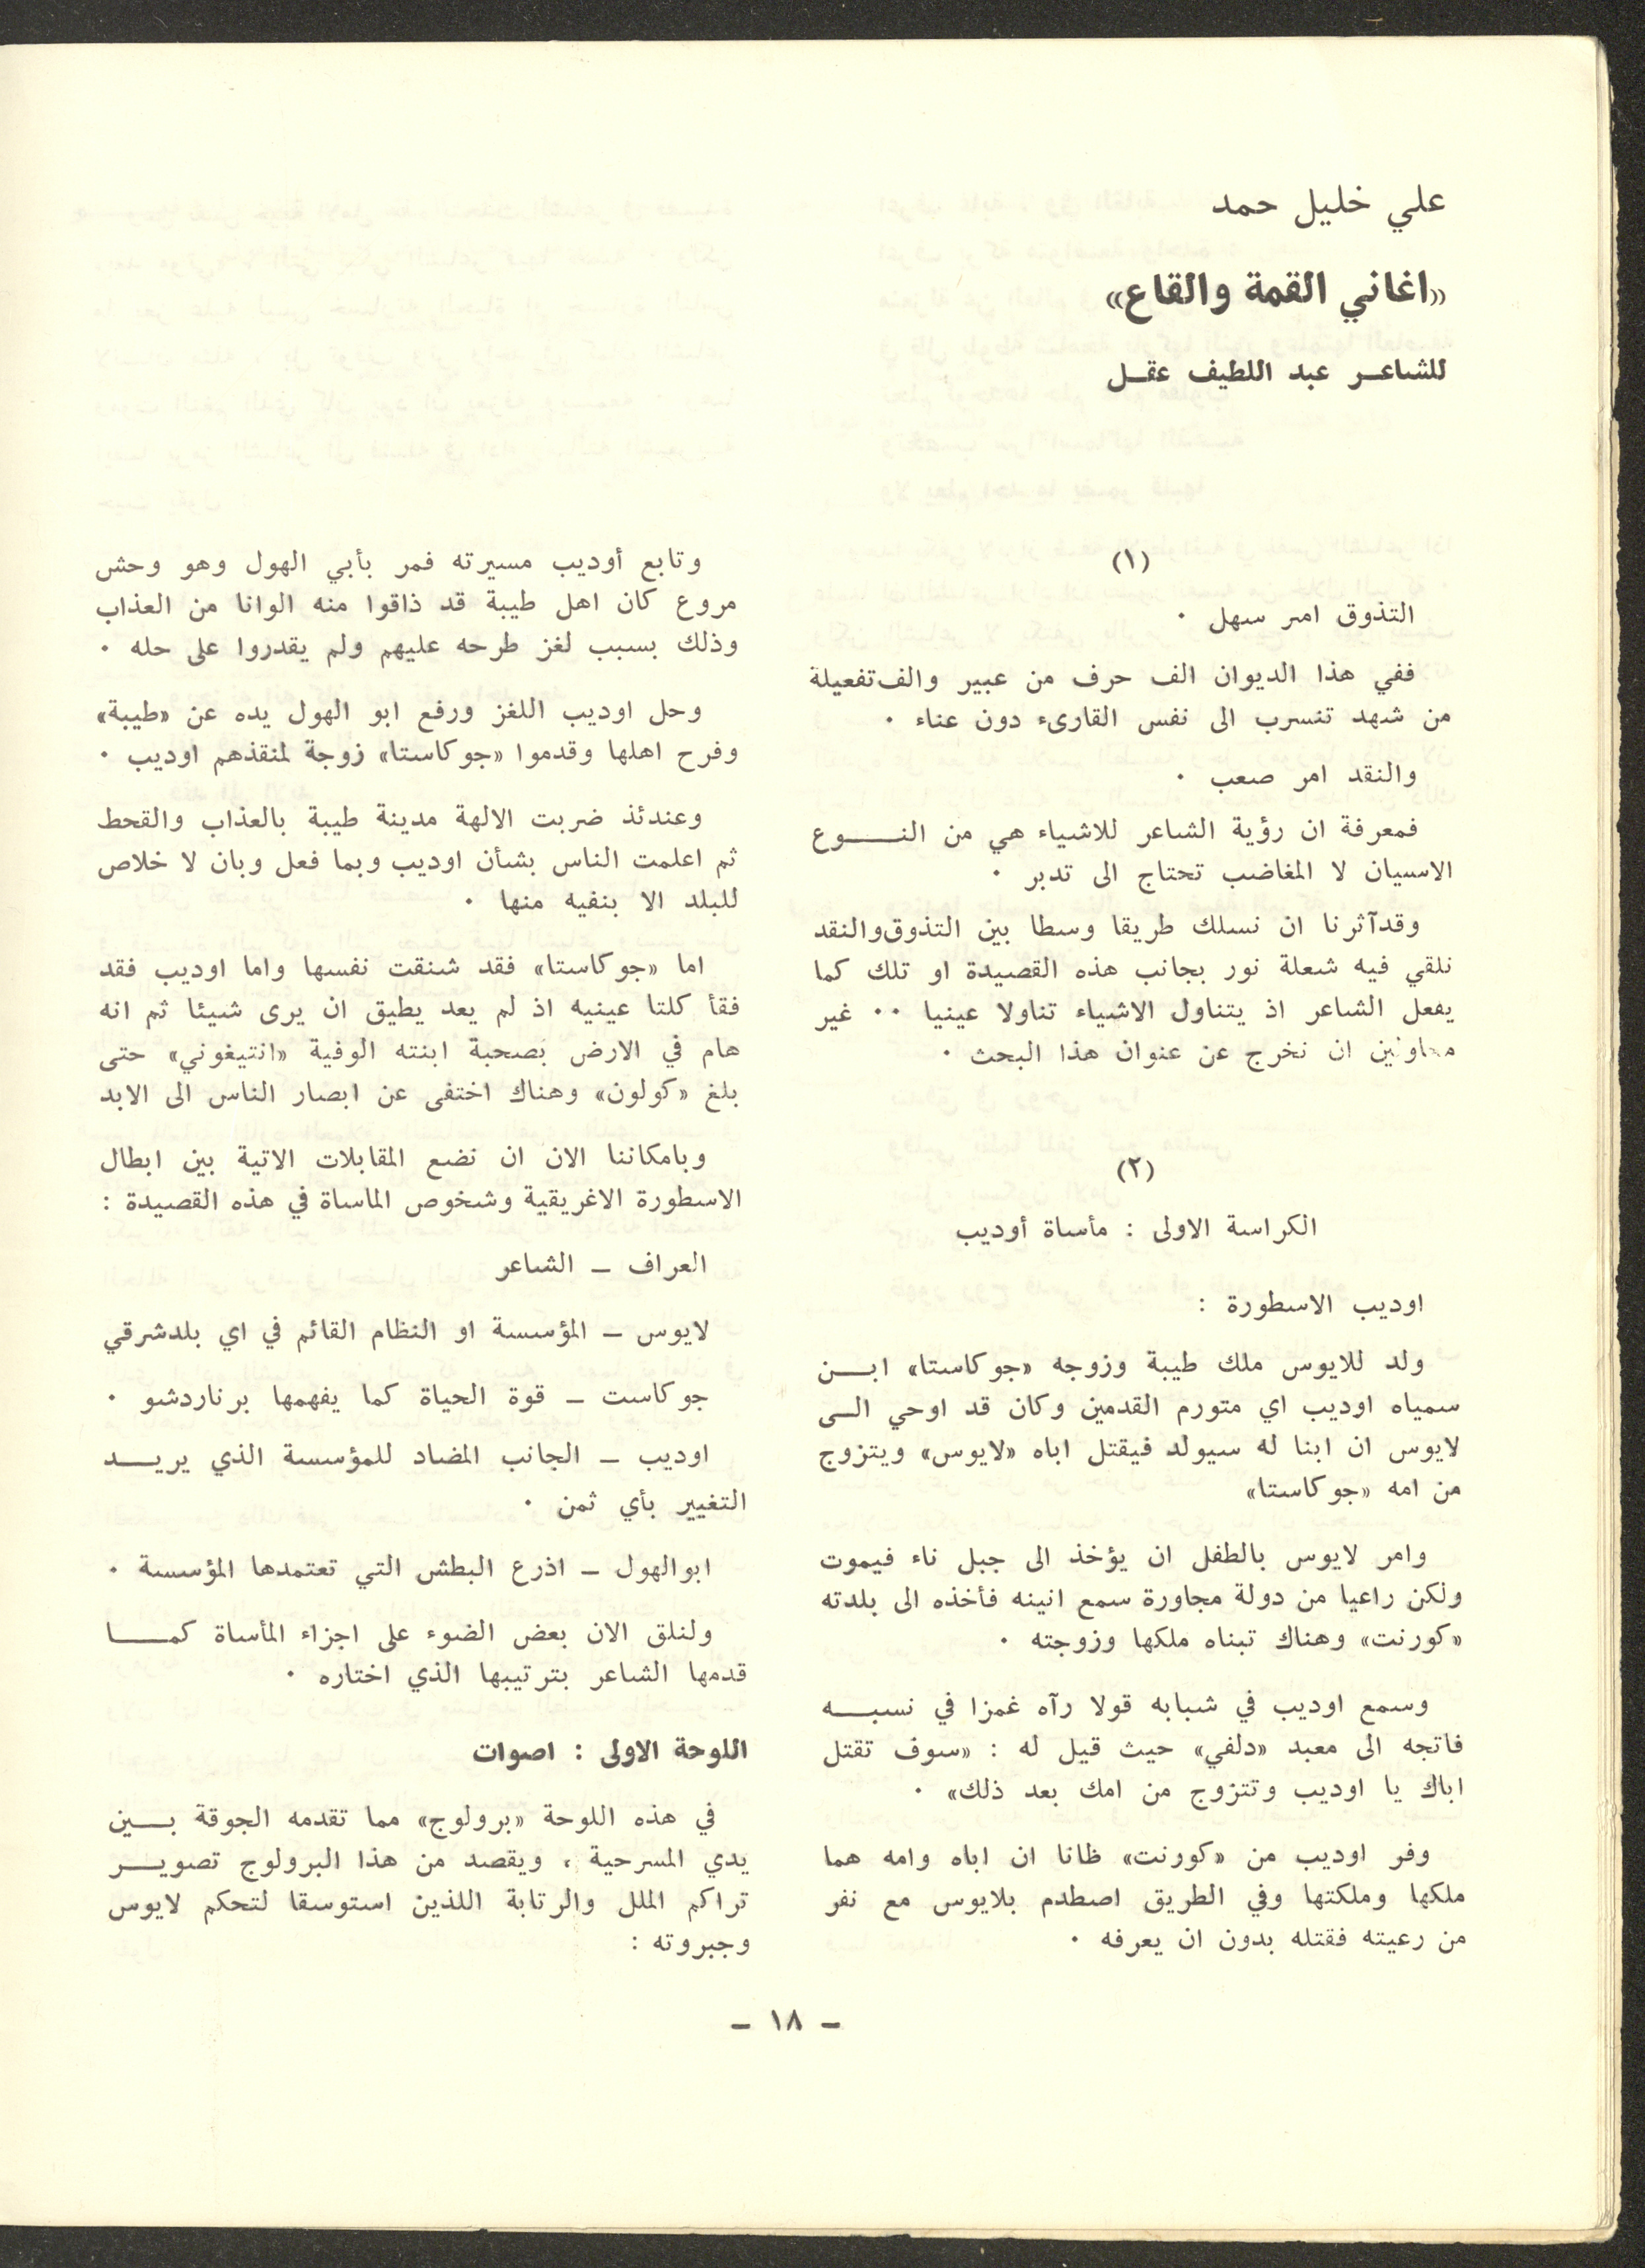 علي خليل حمد
«اغاني القمة والقاع»
للشاعر عبد اللطيف عقل
(١)
التذوق امر سهل ٠
ففي هذا الديوان الف حرف من عبير والف تفعيلة
من شهد تنسرب الى نفس القارىء دون عناء ٠
والنقد امر صعب ٠
فمعرفة ان رؤية الشاعر للاشياء هي من النوع
الاسسيان لا المغاضب تحتاج الى تدبر ٠
وقد آثرنا ان نسلك طريقا وسطا بين التذوق والنقد
نلقي فيه شعلة نور بجانب هذه القصيدة او تلك كما
يفعل الشاعر اذ يتناول الاشياء تناولا عينيا ٠٠ غير
محاولين ان نخرج عن عنوان هذا البحث ٠
(٢)
الكراسة الاولى : مأساة أوديب
اوديب الاسطورة :
ولد للايوس ملك طيبة وزوجه «جوكاستا» ابن
سمياه اوديب اي متورم القدمين وكان قد اوحي الى
لايوس ان ابنا له سيولد فيقتل اباه «لايوس» ويتزوج
من امه «جوكاستا»
وامر لايوس بالطفل ان يؤخذ الى جبل ناء فيموت
ولكن راعيا من دولة مجاورة سمع انينه فأخذه الى بلدته
«كورنت» وهناك تبناه ملكها وزوجته ٠
وسمع اوديب في شبابه قولا رآه غمزا في نسبه
فاتجه الى معبد «دلفي» حيث قيل له : «سوف تقتل
اباك يا اوديب وتتزوج من امك بعد ذلك» ٠
وفر اوديب من «كورنت» ظانا ان اباه وامه هما
ملكها وملكتها وفي الطريق اصطدم بلايوس مع نفر
من رعيته فقتله بدون ان يعرفه ٠
وتابع أوديب مسيرته فمر بأبي الهول وهو وحش
مروع كان اهل طيبة قد ذاقوا منه الوانا من العذاب
وذلك بسبب لغز طرحه عليهم ولم يقدروا على حله ٠
وحل اوديب اللغز ورفع ابو الهول يده عن «طيبة»
وفرح اهلها وقدموا «جوكاستا» زوجة لمنقذهم اوديب ٠
وعندئذ ضربت الالهة مدينة طيبة بالعذاب والقحط
ثم اعلمت الناس بشأن اوديب وبما فعل وبان لا خلاص
للبلد الا بنفيه منها ٠
اما «جوكاستا» فقد شنقت نفسها واما اوديب فقد
فقأ كلتا عينيه اذ لم يعد يطيق ان يرى شيئا ثم انه
هام في الارض بصحبة ابنته الوفية «انتيغوني» حتى
بلغ «كولون» وهناك اختفى عن ابصار الناس الى الابد
وبامكاننا الان ان نضع المقابلات الاتية بين ابطال
الاسطورة الاغريقية وشخوص الماساة في هذه القصيدة :
العراف — الشاعر
لايوس — المؤسسة او النظام القائم في اي بلد شرقي
جوكاست — قوة الحياة كما يفهمها برناردشو ٠
اوديب — الجانب المضاد للمؤسسة الذي يريد
التغيير بأي ثمن ٠
ابو الهول — اذرع البطش التي تعتمدها المؤسسة ٠
ولنلق الان بعض الضوء على اجزاء المأساة كما
قدمها الشاعر بترتيبها الذي اختاره ٠
اللوحة الاولى : اصوات
في هذه اللوحة «برولوج» مما تقدمه الجوقة بين
يدي المسرحية ، ويقصد من هذا البرولوج تصوير
تراكم الملل والرتابة اللذين استوسقا لتحكم لايوس
وجبروته :
— ١٨ —